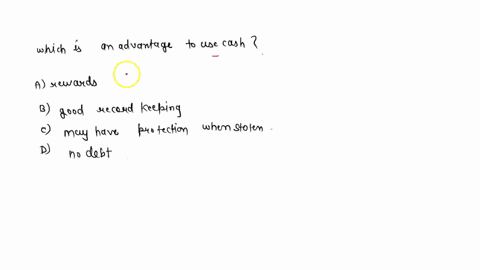 which is an advantage to use cash ?
A) rewards
B) good record keeping
C) may have protection when stolen .
D) no debt